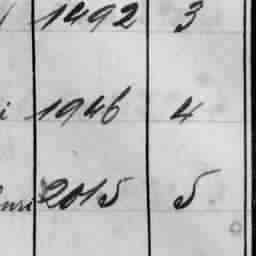 1492 3
i 1946 4
uri 2015 5